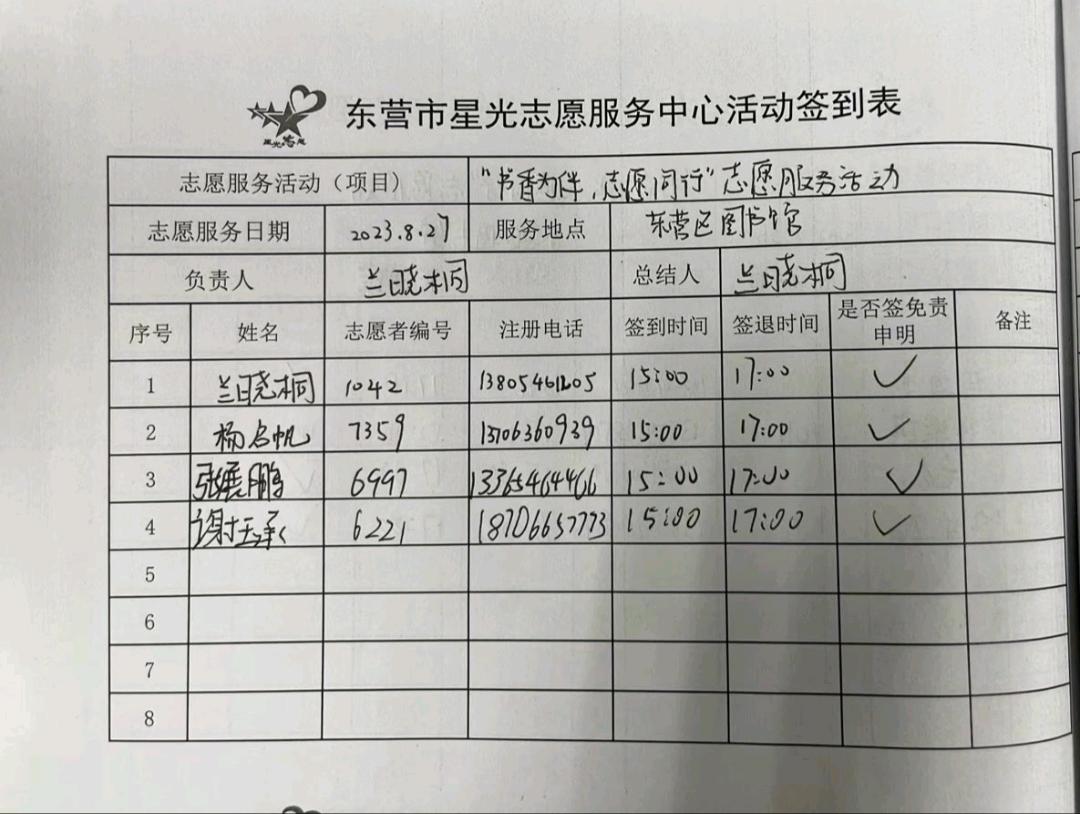 星光志愿
东营市星光志愿服务中心活动签到表
志愿服务活动（项目） "书香为伴，志愿同行"志愿服务活动
志愿服务日期 2023.8.27 服务地点 东营区图书馆
负责人 兰晓桐 总结人 兰晓桐
序号 姓名 志愿者编号 注册电话 签到时间 签退时间 是否签免责申明 备注
1 兰晓桐 1042 13805461205 15:00 17:00 ✓
2 杨启帆 7359 13706360939 15:00 17:00 ✓
3 张展鹏 6997 13365464466 15:00 17:00 ✓
4 谢玉承 6221 18706657773 15:00 17:00 ✓
5
6
7
8